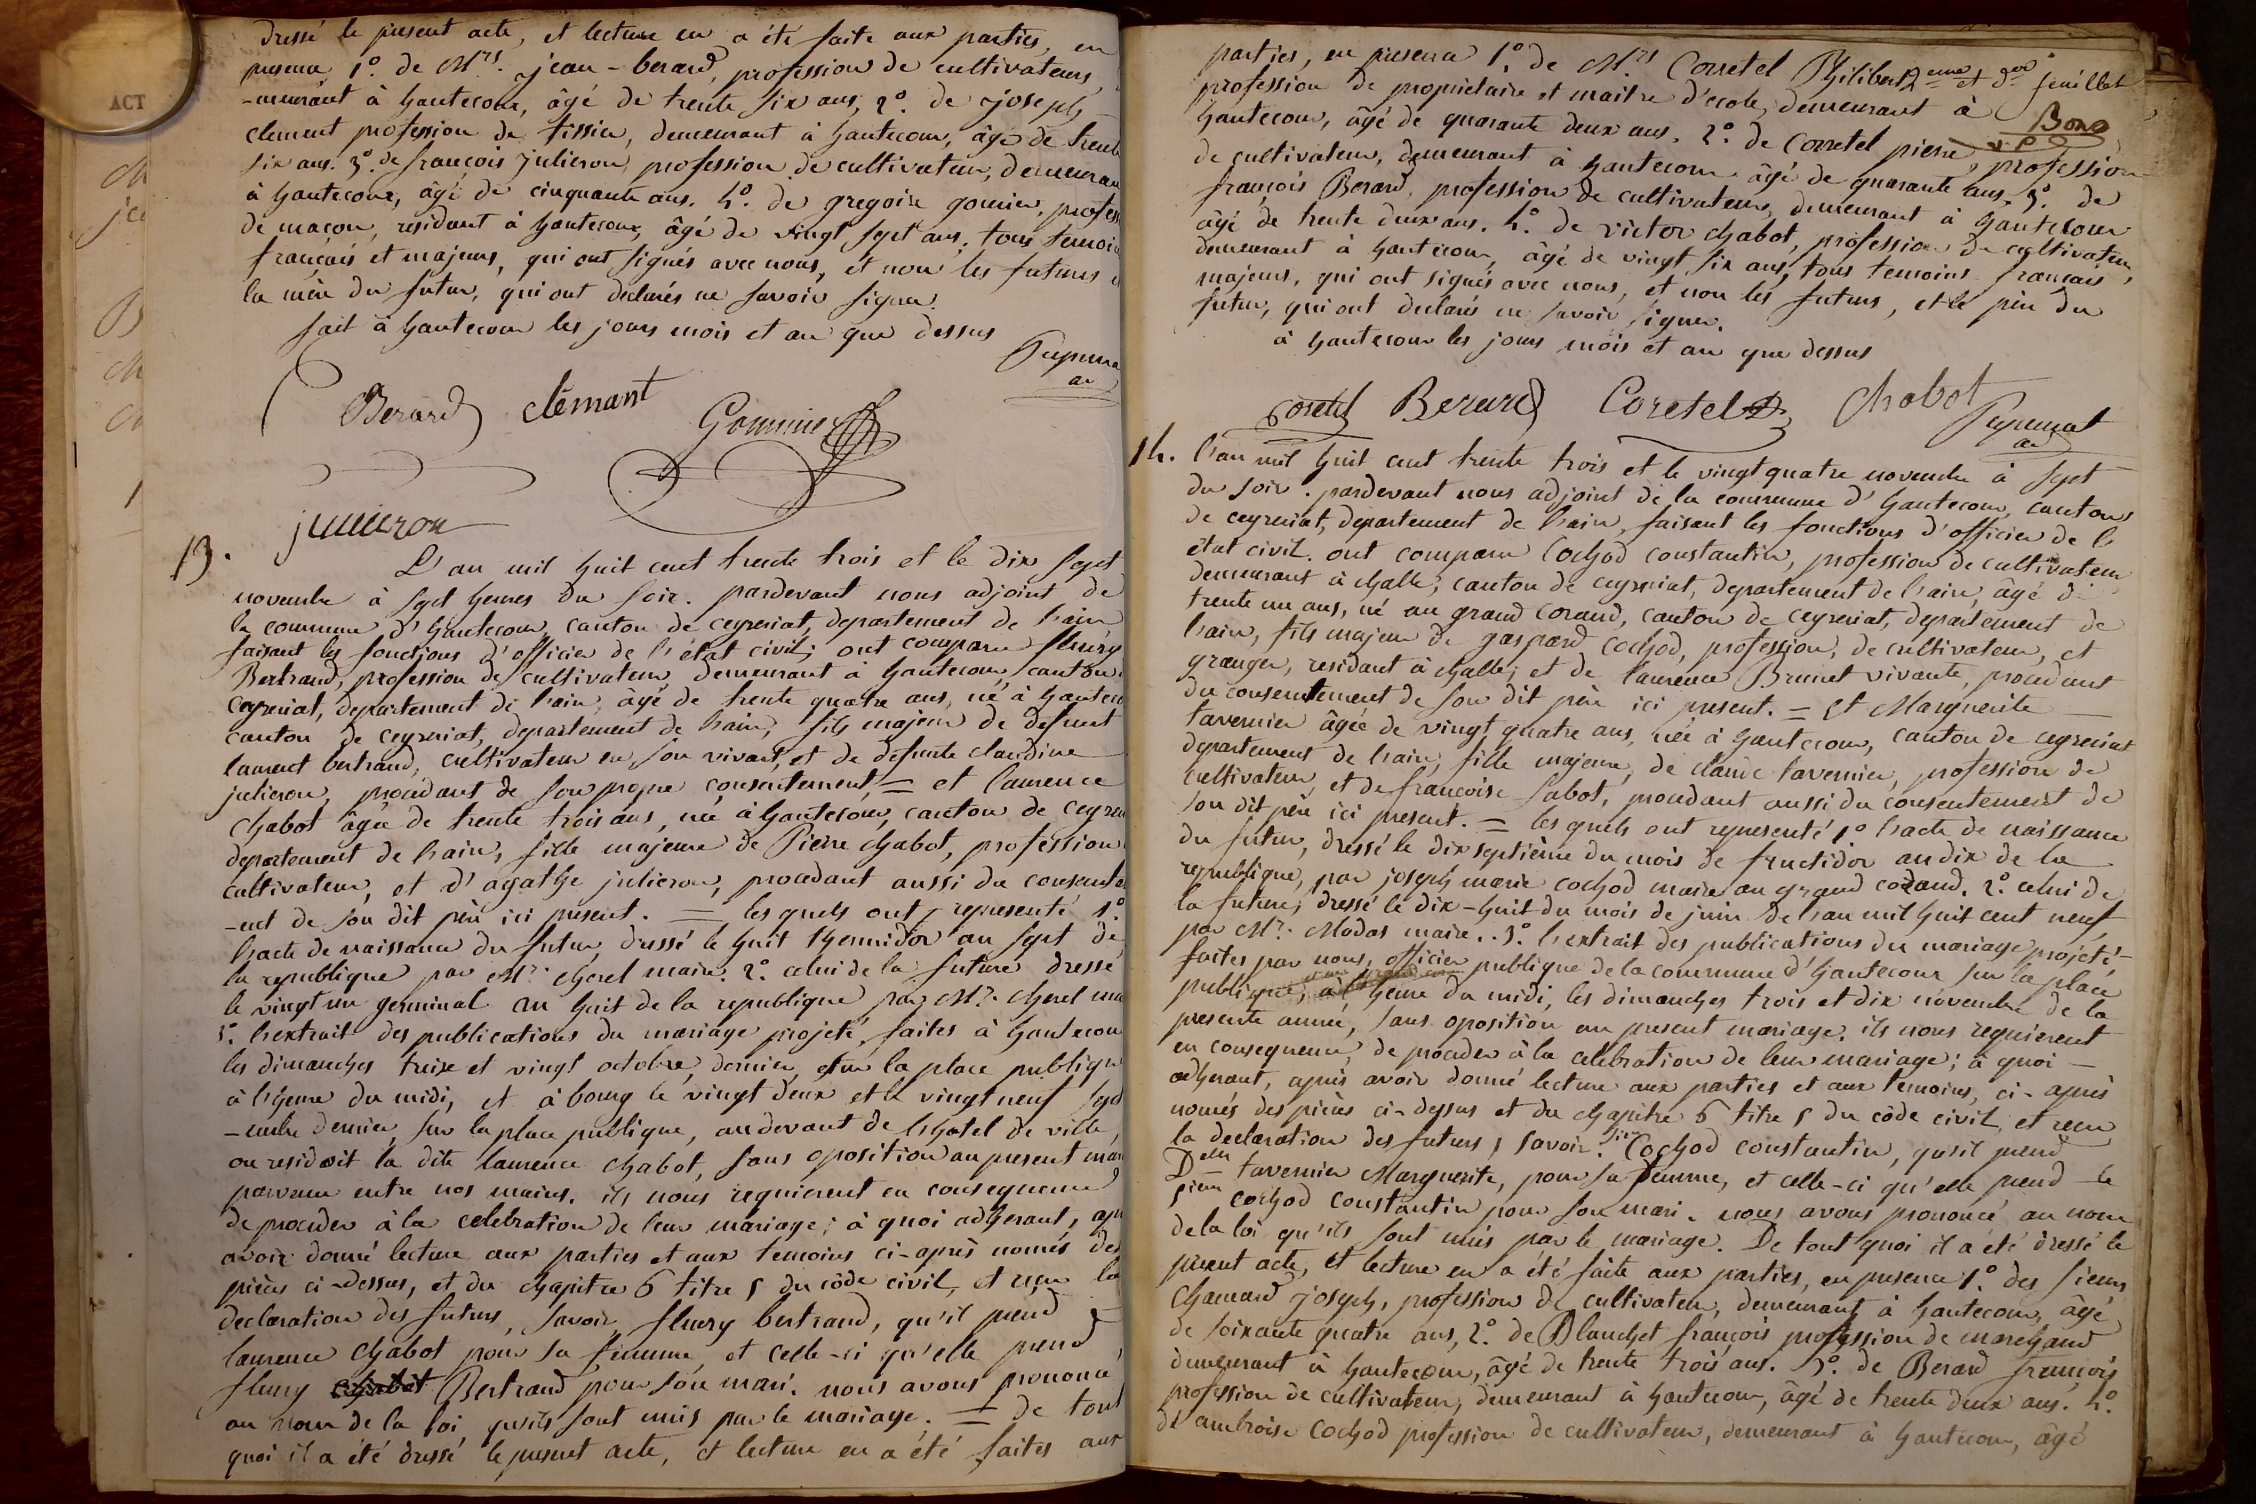 dressé le present acte, et lecture en a été faite aux parties, en
presence 1º. de Mrs. jean-berard, profession de cultivateurs,
-meurant à hautecour, âgé de trente six ans, 2º. de joseph
clement profession de tissier, demeurant à hautecour, âgé de trente
six ans. 3º. de françois julieron, profession de cultivateur, demeuran
à hautecour, âgé de cinquante ans. 4º. de gregoire gomier, profess
de maçon, residant à hautecour, âgé de vingt sept ans, tous temoin
français et majeurs, qui ont signés avec nous, et non les futurs et
la mère du futur, qui ont declarés ne savoir signer.
fait à hautecour les jours mois et an que dessus
Berard clemant Gommier
julieron
ACT
13. L'an mil huit cent trente trois et le dix sept
novembre à sept heures du soir. pardevant nous adjoint de
la commune d'hautecour, canton de ceyzeriat, departement de l'ain,
faisant les fonctions d'officier de l'état civil; ont comparu fleury
Bertrand, profession de cultivateur, demeurant à hautecour, canton
ceyzeriat, departement de l'ain, âgé de trente quatre ans, né à hauteco
canton de ceyzeriat, departement de l'ain, fils majeur de defunt
laurent bertrand, cultivateur en son vivant, et de defunte claudine
julieron, procedant de son propre consentement = et laurence
chabot âgée de trente trois ans, née à hautecour, canton de ceyzer
departement de l'ain, fille majeure de Pierre chabot, profession
cultivateur, et d'agathe julieron, procedant aussi du consente
-ent de son dit père ici present. = les quels ont representé 1º.
l'acte de naissance du futur, dressé le huit thermidor an sept de
la republique par Mr. cherel maire. 2º. celui de la future dressé
le vingt un germinal an huit de la republique par Mr. cherel mai
3º. l'extrait des publications du mariage projeté, faites à hautecou
les dimanches treize et vingt octobre dernier, sur la place publique
à l'heure du midi, et à bourg le vingt deux et le vingt neuf sept
-embre dernier, sur la place publique, au devant de l'hotel de ville,
ou residoit la dite laurence chabot, sans oposition au present mari
parvenue entre nos mains. ils nous requierent en consequence
de proceder à la celebration de leur mariage; à quoi adherant, apr
avoir donné lecture aux parties et aux temoins ci-après només des
pièces ci-dessus, et du chapitre 6 titre 5 du côde civil, et reçu la
declaration des futurs, savoir fleury bertrand, qu'il prend
laurence chabot pour sa femme, et celle-ci qu'elle prend
fleury chabot Bertrand pour son mari. nous avons prononcé
au nom de la loi, qu'ils sont unis par le mariage. = de tout
quoi il a été dressé le present acte, et lecture en a été faites aux
parties, en presence 1º. de Mrs Corretel Philibert
2eme et der feuillet
profession de proprietaire et maitre d'ecole, demeurant à
hautecour, âgé de quarante deux ans. 2º. de corretel pierre, profession
de cultivateur, demeurant à hautecour âgé de quarante ans. 3º. de
françois Berard, profession de cultivateur, demeurant à hautecour
âgé de trente deux ans. 4º. de victor chabot, profession de cultivateur,
demeurant à hautecour, âgé de vingt six ans, tous temoins français,
majeurs, qui ont signés avec nous, et non les futurs, et le père du
futur, qui ont declarés ne savoir signer.
à hautecour les jours mois et an que dessus
coretel Berard Coretel chabot
14. L'an mil huit cent trente trois et le vingt quatre novembre à sept
du soir. pardevant nous adjoint de la commune d'hautecour, canton
de ceyzeriat, departement de l'ain, faisant les fonctions d'officier de l'
état civil. ont comparu Cochod constantin, profession de cultivateur
demeurant à challe, canton de ceyzeriat, departement de l'ain, âgé de
trente un ans, né au grand corand, canton de ceyzeriat, departement de
l'ain, fils majeur de gaspard cochod, profession, de cultivateur, et
granger, residant à challe; et de laurence Brunet vivante, procedant
du consentement de son dit père ici present. = Et Marguerite
tavernier âgée de vingt quatre ans, née à hautecour, canton de ceyzeriat
departement de l'ain, fille majeure, de claude tavernier, profession de
cultivateur, et de francoise sabot, procedant aussi du consentement de
son dit père ici present. = les quels ont representé 1º l'acte de naissance
du futur, dressé le dix septième du mois de fructidor an dix de la
republique, par joseph marie cochod maire au grand corand. 2º. celui de
la future, dressé le dix-huit du mois de juin de l'an mil huit cent neuf
par Mr. Modas maire.. 3º. l'extrait des publications du mariage projeté
faites par nous, officier publique de la commune d'hautecour sur la place
publique, à l'heure du midi, les dimanches trois et dix novembre de la
presente année, sans oposition au present mariage. ils nous requierent
en consequence, de proceder à la celebration de leur mariage; à quoi
adherant, après avoir donné lecture aux parties et aux temoins, ci-après
només des pièces ci-dessus et du chapitre 6 titre 5 du côde civil, et reçu
la declaration des futurs, savoir. sieur Cochod constantin, qu'il prend
Delle tavernier Marguerite, pour sa femme, et celle-ci qu'elle prend le
sieur cochod constantin pour son mari. nous avons prononcé au nom
de la loi qu'ils sont unis par le mariage. De tout quoi il a été dressé le
present acte, et lecture en a été faite aux parties, en presence 1º. des sieurs
chanard joseph, profession de cultivateur, demeurant à hautecour, âgé
de soixante quatre ans, 2º. de Blanchet françois profession de marchand
demeurant à hautecour, âgé de trente trois ans. 3º. de Berard françois
profession de cultivateur, demeurant à hautecour, âgé de trente deux ans. 4º.
de ambroise cochod profession de cultivateur, demeurant à hautecour, âgé